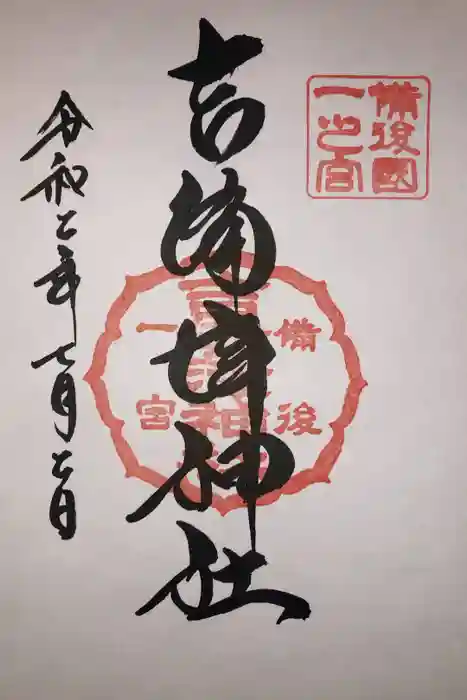 備後國
一之宮
吉備津神社
備後
一宮
令和二年七月二日